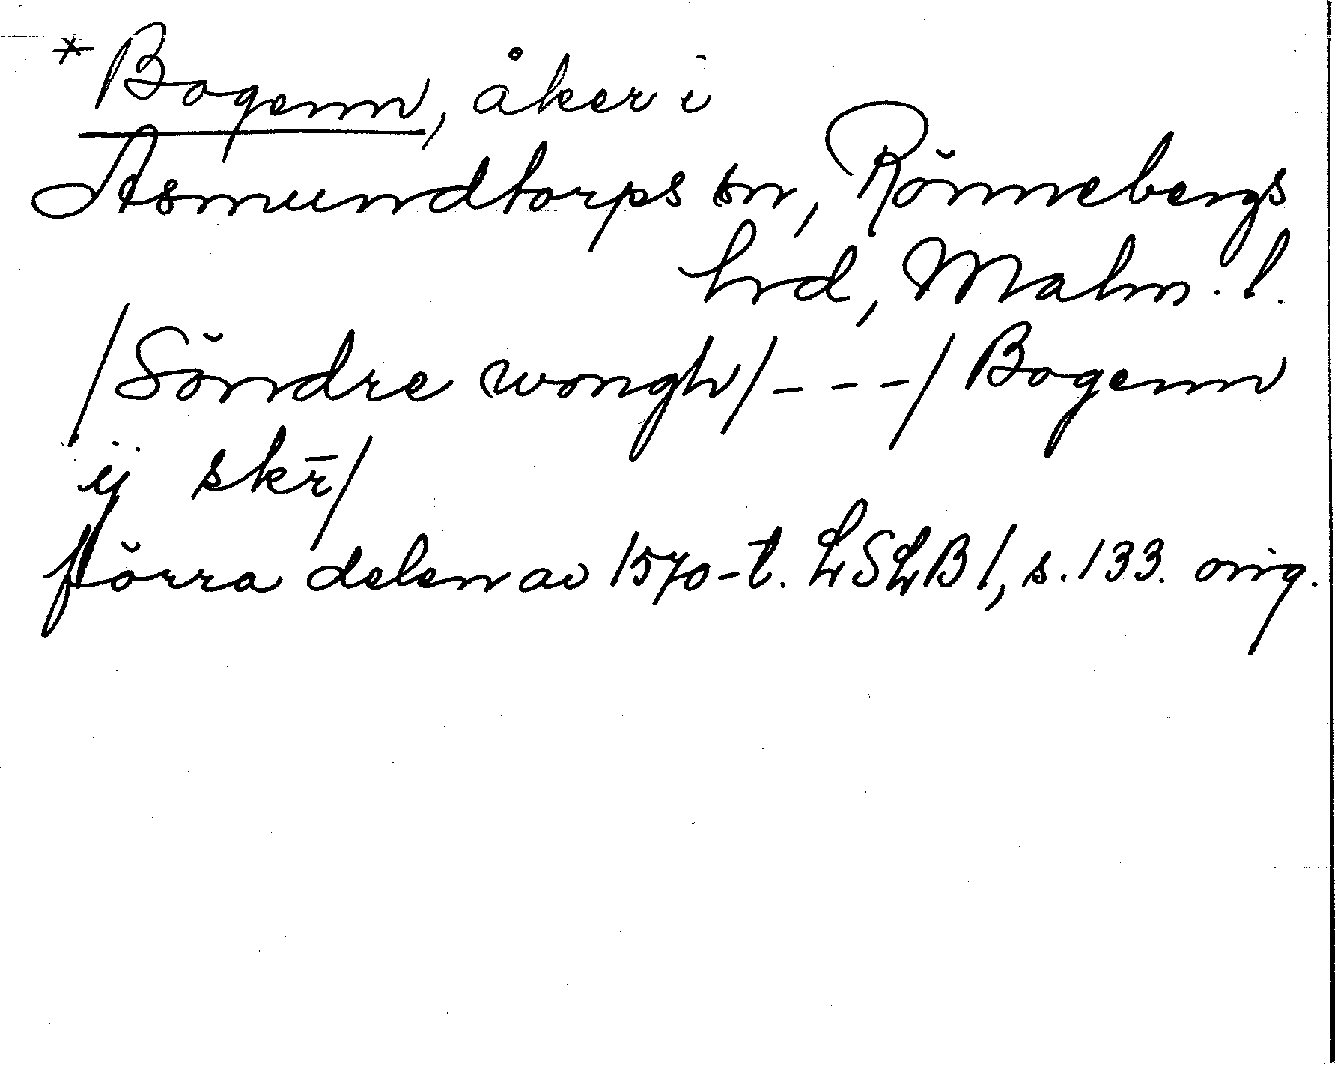 *Bogenn, åker i
Asmundtorps sn, Rönnebergs
hrd, Malm. l.
/Söndre wongh/ - - - / Bogenn
ij skr̄/
förra delen av 1570-t. LSLB 1, s. 133. orig.